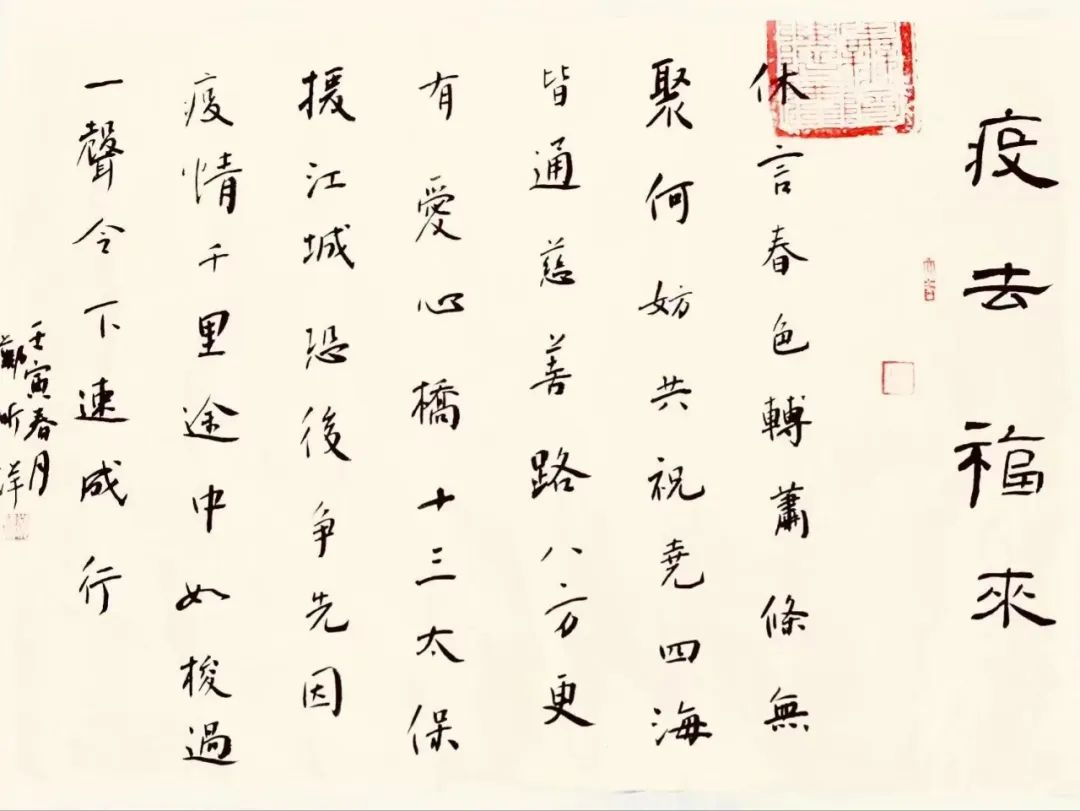 疫去福來
休言春色轉蕭條無
聚何妨共祝堯四海
皆通慈善路八方更
有愛心橋十三太保
援江城恐後争先因
疫情千里途中如梭過
一聲令下速成行
壬寅春月
鄭昕洋